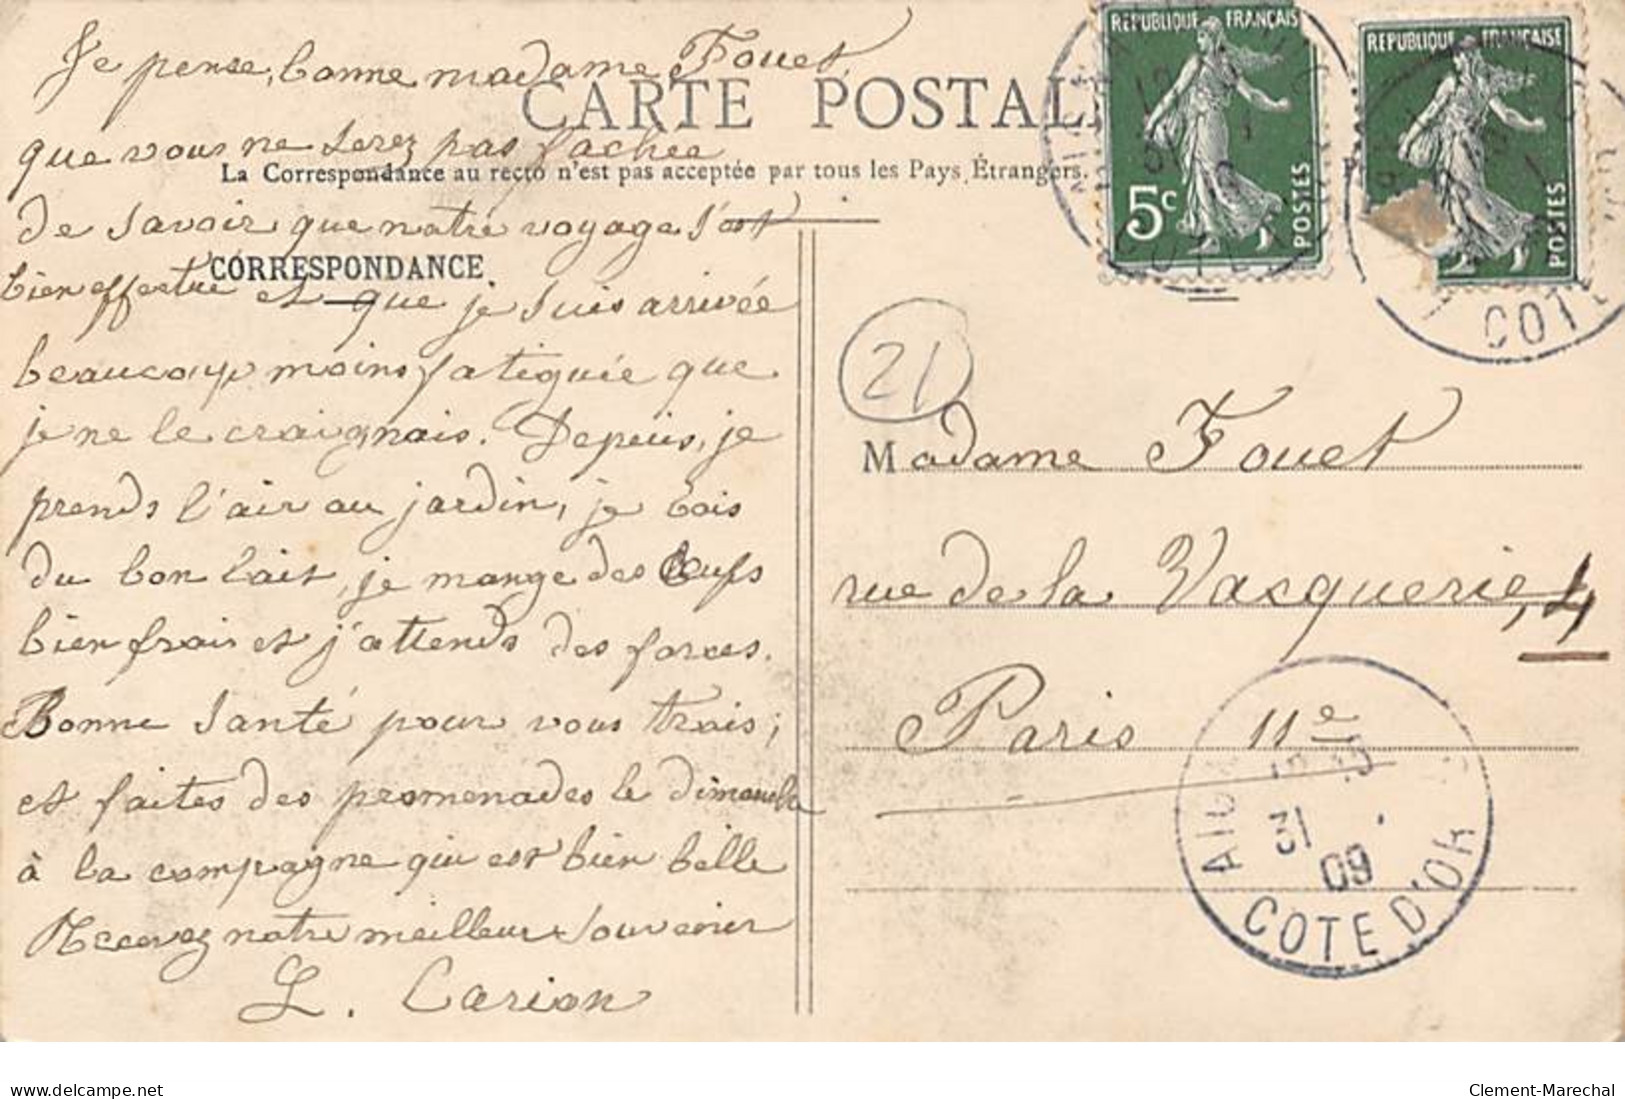 Je pense, bonne madame Fouet,
CARTE POSTAL
que vous ne serez pas fachée
La Correspondance au recto n'est pas acceptée par tous les Pays Étrangers.
de savoir que notre voyage s'est
CORRESPONDANCE
bien effectué et que je suis arrivée
beaucoup moins fatiguée que
je ne le craignais. Depuis, je
prends l'air au jardin, je bois
du bon lait, je mange des œufs
bien frais et j'attends des forces.
Bonne santé pour vous trois;
et faites des promenades le dimanche
à la campagne qui est bien belle
Recevez notre meilleur souvenir
L. Carion
REPUBLIQUE FRANÇAIS
5c
POSTES
REPUBLIQUE FRANÇAISE
POSTES
COTE
21
Madame Fouet
rue de la Vacquerie, 4
Paris 11e
31
09
COTE D'OR
delcampe.net
Clement-Marechal